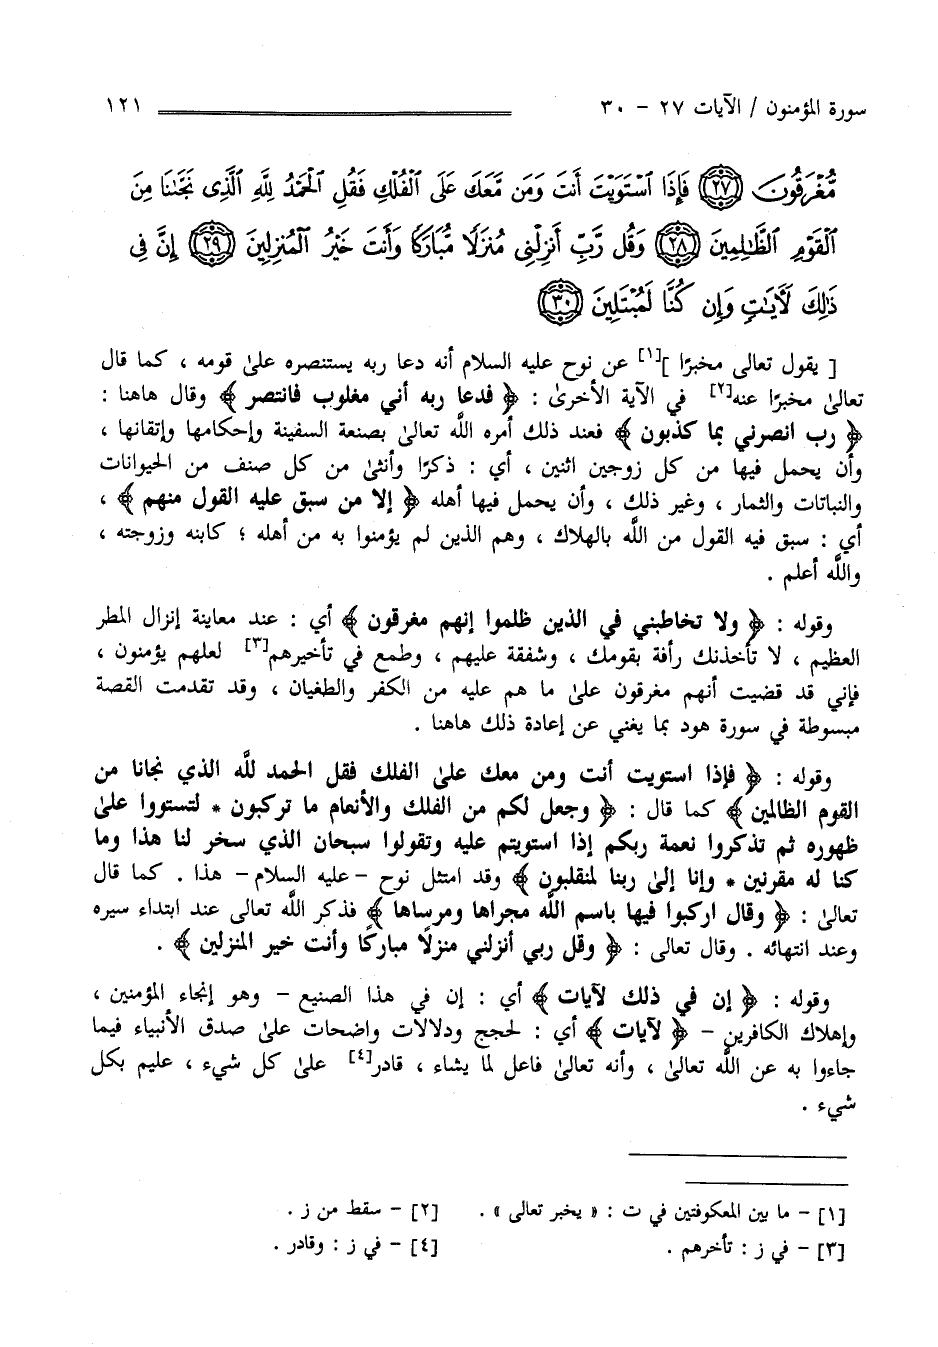 سورة المؤمنون / الآيات ٢٧ - ٣٠ ١٢١
مُّغْرَقُونَ ٢٧ فَإِذَا ٱسْتَوَيْتَ أَنتَ وَمَن مَّعَكَ عَلَى ٱلْفُلْكِ فَقُلِ ٱلْحَمْدُ لِلَّهِ ٱلَّذِى نَجَّىٰنَا مِنَ
ٱلْقَوْمِ ٱلظَّٰلِمِينَ ٢٨ وَقُل رَّبِّ أَنزِلْنِى مُنزَلًا مُّبَارَكًا وَأَنتَ خَيْرُ ٱلْمُنزِلِينَ ٢٩ إِنَّ فِى
ذَٰلِكَ لَءَايَٰتٍ وَإِن كُنَّا لَمُبْتَلِينَ ٣٠
[ يقول تعالى مخبرًا ][١] عن نوح عليه السلام أنه دعا ربه يستنصره علىٰ قومه ، كما قال
تعالىٰ مخبرًا عنه[٢] في الآية الأخرىٰ : ﴿ فدعا ربه أني مغلوب فانتصر ﴾ وقال هاهنا :
﴿ رب انصرني بما كذبون ﴾ فعند ذلك أمره اللَّه تعالىٰ بصنعة السفينة وإحكامها وإتقانها ،
وأن يحمل فيها من كل زوجين اثنين ، أي : ذكرًا وأنثىٰ من كل صنف من الحيوانات
والنباتات والثمار ، وغير ذلك ، وأن يحمل فيها أهله ﴿ إلا من سبق عليه القول منهم ﴾ ،
أي : سبق فيه القول من اللَّه بالهلاك ، وهم الذين لم يؤمنوا به من أهله ؛ كابنه وزوجته ،
واللَّه أعلم .
وقوله : ﴿ ولا تخاطبني في الذين ظلموا إنهم مغرقون ﴾ أي : عند معاينة إنزال المطر
العظيم ، لا تأخذنك رأفة بقومك ، وشفقة عليهم ، وطمع في تأخيرهم[٣] لعلهم يؤمنون ،
فإني قد قضيت أنهم مغرقون علىٰ ما هم عليه من الكفر والطغيان ، وقد تقدمت القصة
مبسوطة في سورة هود بما يغني عن إعادة ذلك هاهنا .
وقوله : ﴿ فإذا استويت أنت ومن معك علىٰ الفلك فقل الحمد للَّه الذي نجانا من
القوم الظالمين ﴾ كما قال : ﴿ وجعل لكم من الفلك والأنعام ما تركبون * لتستووا علىٰ
ظهوره ثم تذكروا نعمة ربكم إذا استويتم عليه وتقولوا سبحان الذي سخر لنا هذا وما
كنا له مقرنين * وإنا إلىٰ ربنا لمنقلبون ﴾ وقد امتثل نوح -عليه السلام- هذا . كما قال
تعالىٰ : ﴿ وقال اركبوا فيها باسم اللَّه مجراها ومرساها ﴾ فذكر اللَّه تعالى عند ابتداء سيره
وعند انتهائه . وقال تعالى : ﴿ وقل ربي أنزلني منزلًا مباركًا وأنت خير المنزلين ﴾ .
وقوله : ﴿ إن في ذلك لآيات ﴾ أي : إن في هذا الصنيع - وهو إنجاء المؤمنين ،
وإهلاك الكافرين - ﴿ لآيات ﴾ أي : لحجج ودلالات واضحات علىٰ صدق الأنبياء فيما
جاءوا به عن اللَّه تعالىٰ ، وأنه تعالىٰ فاعل لما يشاء ، قادر[٤] علىٰ كل شيء ، عليم بكل
شيء .
[١] - ما بين المعكوفتين في ت : « يخبر تعالى » . [٢] - سقط من ز .
[٣] - في ز : تأخرهم . [٤] - في ز : وقادر .